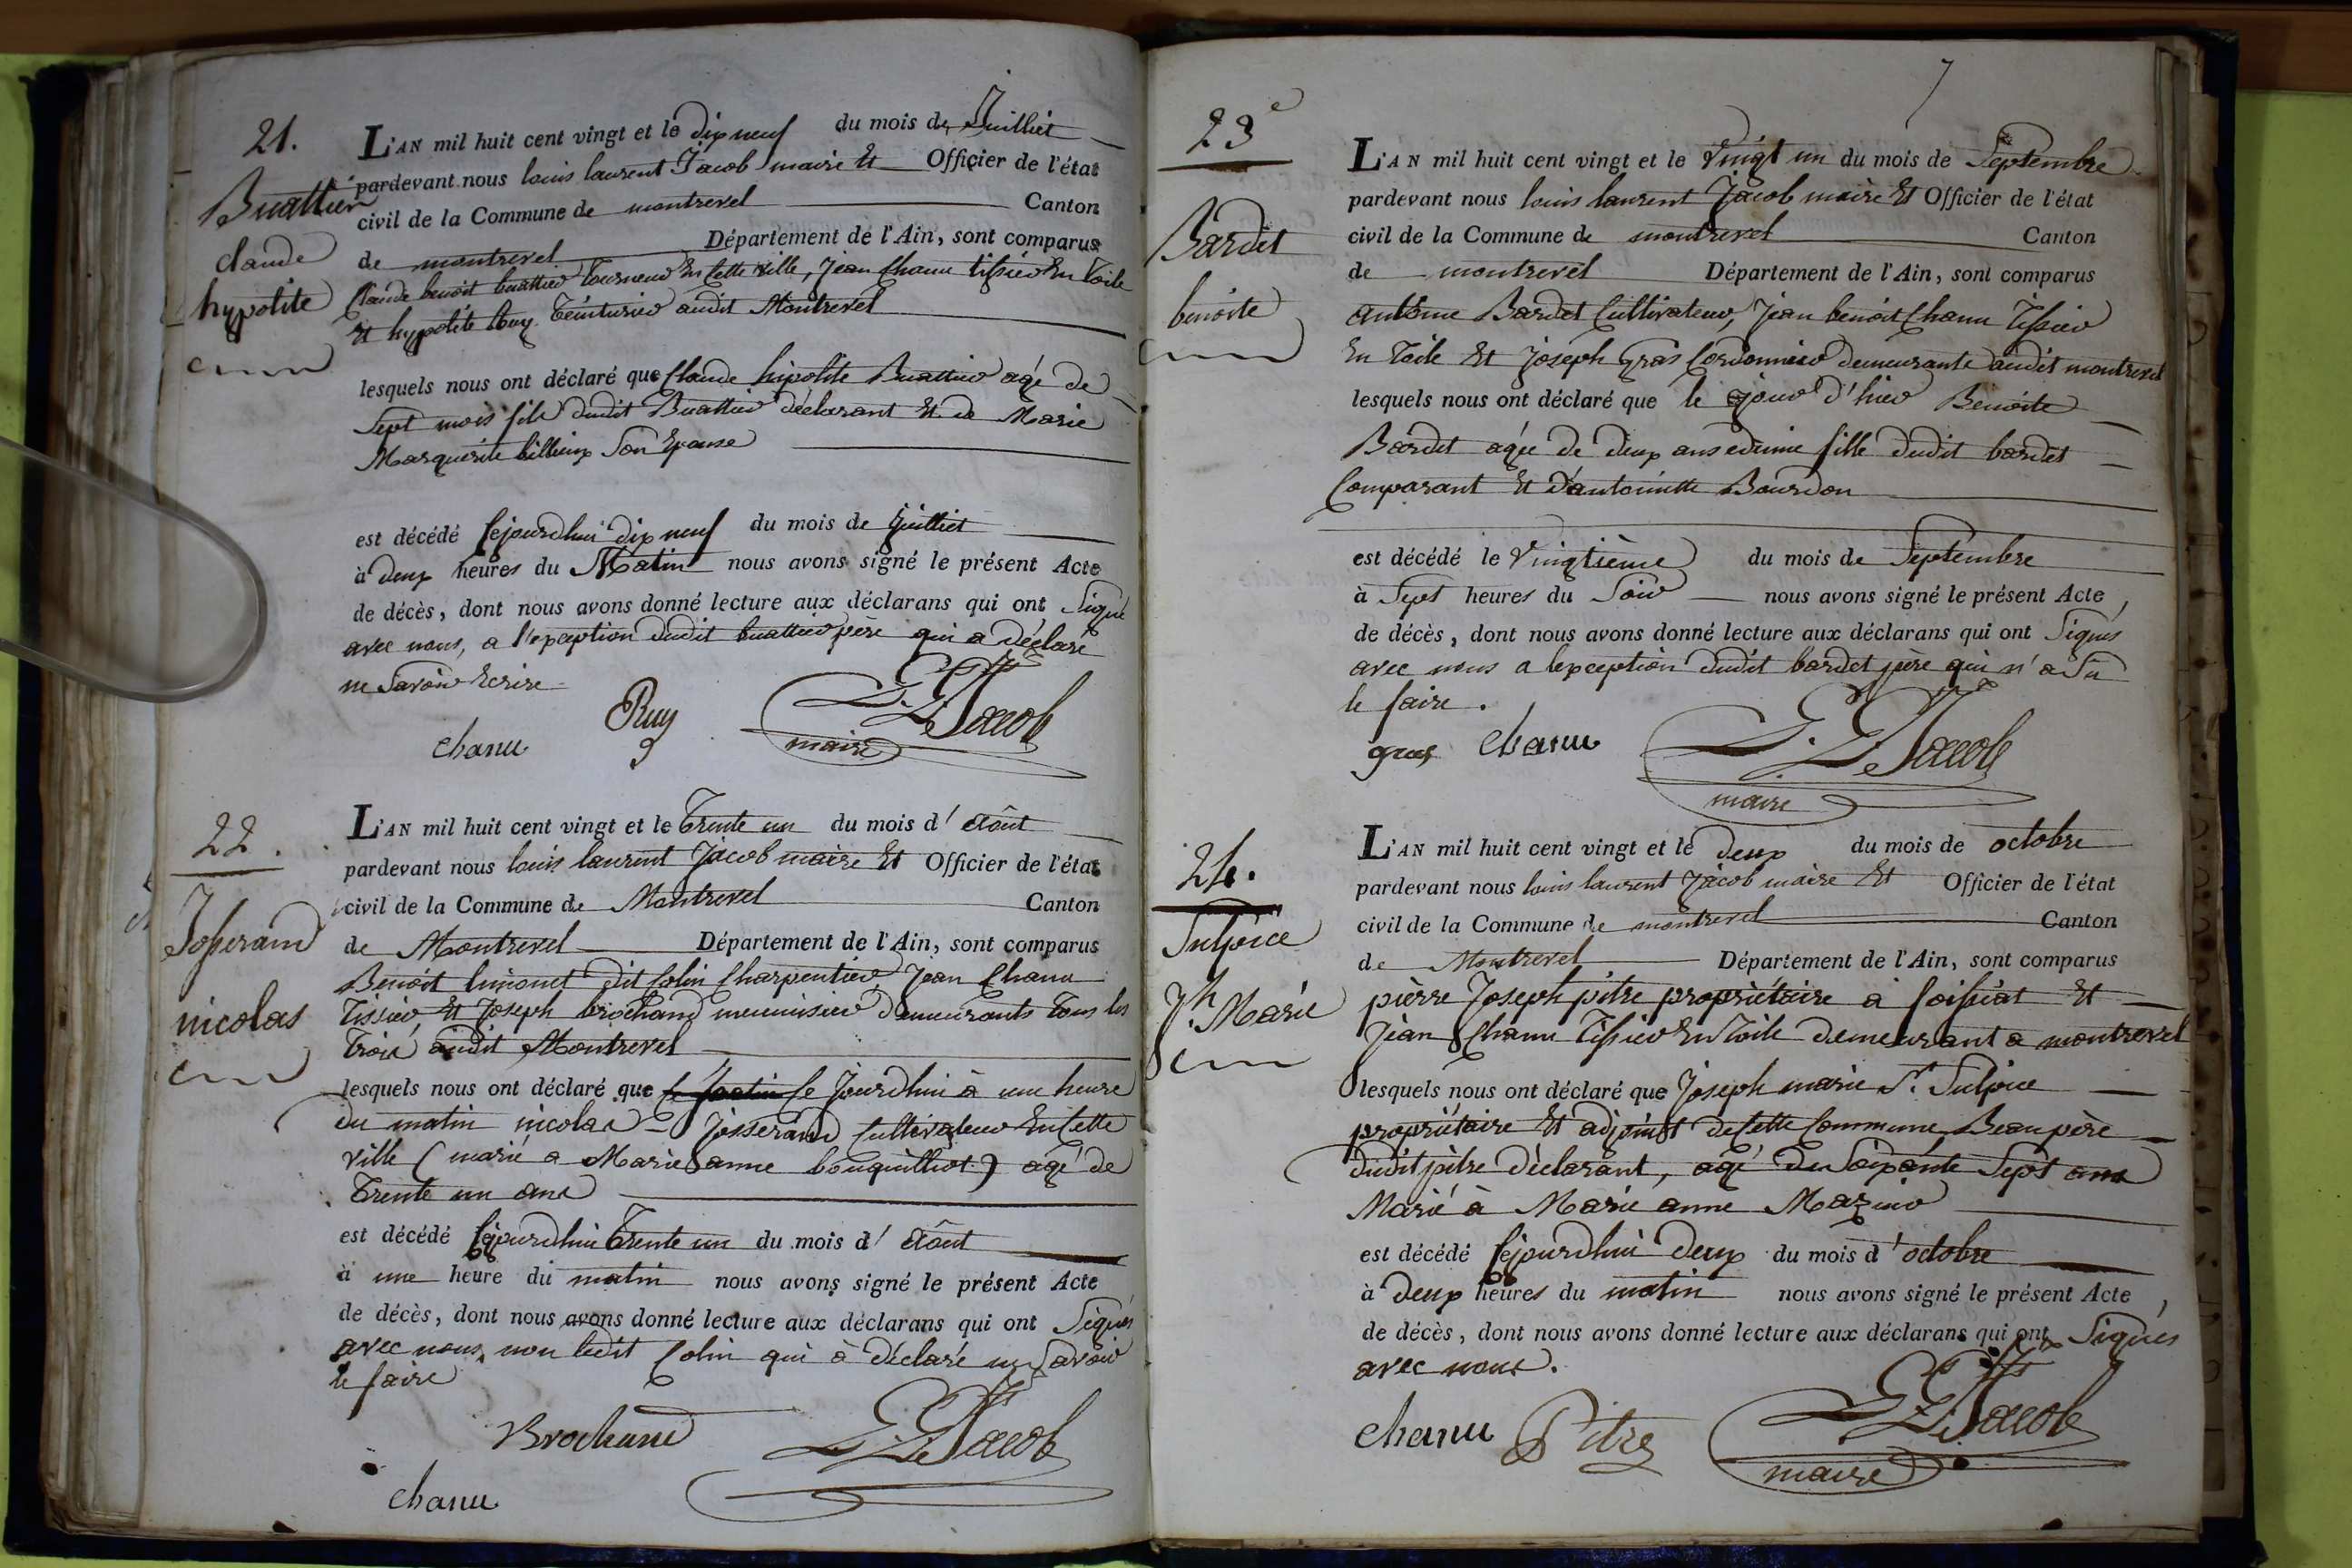 21.
Buattier
claude
hypolite
L'AN mil huit cent vingt et le dix neuf du mois de Juilliet
pardevant nous louis laurent Jacob maire Et Officier de l'état
civil de la Commune de montrevel Canton
de montrevel Département de l'Ain, sont comparus
Claude benoit buattier tourneur En Cette ville, Jean Chanu tissier En toile
Et hypolite Ruy teinturier audit Montrevel
lesquels nous ont déclaré que Claude hipolite Buattier agé de
Sept mois fils dudit Buattier déclarant Et de Marie
Marguerite billioux Son Epouse
est décédé Cejourdhui dix neuf du mois de juilliet
à deux heures du Matin nous avons signé le présent Acte
de décès, dont nous avons donné lecture aux déclarans qui ont Signé
avec nous, a l'exception dudit buattier père qui a déclaré
ne Savoir Ecrire
chanu Ruy L. L. Jacob
maire
22.
Josserand
nicolas
L'AN mil huit cent vingt et le Trente un du mois d' Août
pardevant nous louis laurent Jacob maire Et Officier de l'état
civil de la Commune de Montrevel Canton
de Montrevel Département de l'Ain, sont comparus
Benoit limonet dit Colin Charpentier, Jean Chanu
Tissier Et Joseph brochand menuisier demeurants tous les
trois audit Montrevel
lesquels nous ont déclaré que Ce Jourdhui à une heure
du matin nicolas Josserand Cultivateur En Cette
ville (marié a Marie anne bouquilliot) agé de
Trente un ans
est décédé Cejourdhui Trente un du mois d' Août
à une heure du matin nous avons signé le présent Acte
de décès, dont nous avons donné lecture aux déclarans qui ont Signés
avec nous, non ledit Colin qui à déclaré ne Savoir
le faire
Brochand L. L. Jacob
chanu
7
23e
Bardet
benoite
L'AN mil huit cent vingt et le Vingt un du mois de Septembre
pardevant nous louis laurent Jacob maire Et Officier de l'état
civil de la Commune de montrevel Canton
de montrevel Département de l'Ain, sont comparus
antoine Bardet Cultivateur, Jean benoit Chanu Tissier
En Toile Et Joseph Gras Cordonnier demeurants audit montrevel
lesquels nous ont déclaré que le jour d'hier Benoite
Bardet agée de deux ans edemie fille dudit bardet
Comparant Et d'antoinette Bourdon
est décédé le Vingtième du mois de Septembre
à Sept heures du Soir nous avons signé le présent Acte
de décès, dont nous avons donné lecture aux déclarans qui ont Signés
avec nous a lexception dudit bardet père qui n'a Su
le faire.
gras chanu L. L. Jacob
maire
24.
Sulpice
Jh. Marie
L'AN mil huit cent vingt et le deux du mois de octobre
pardevant nous louis laurent Jacob maire Et Officier de l'état
civil de la Commune de montrevel Canton
de Montrevel Département de l'Ain, sont comparus
pierre Joseph pitre propriétaire a foissiat Et
Jean Chanu Tissier En Toile demeurant a montrevel
lesquels nous ont déclaré que Joseph marie St. Sulpice
propriétaire Et adjoint de Cette Commune, Beau père
dudit pitre déclarant, agé de Soixante Sept ans
Marié à Marie anne Mazuir
est décédé Cejourdhui deux du mois d'octobre
à deux heures du matin nous avons signé le présent Acte
de décès, dont nous avons donné lecture aux déclarans qui ont Signés
avec nous.
chanu Pitre L. L. Jacob
maire